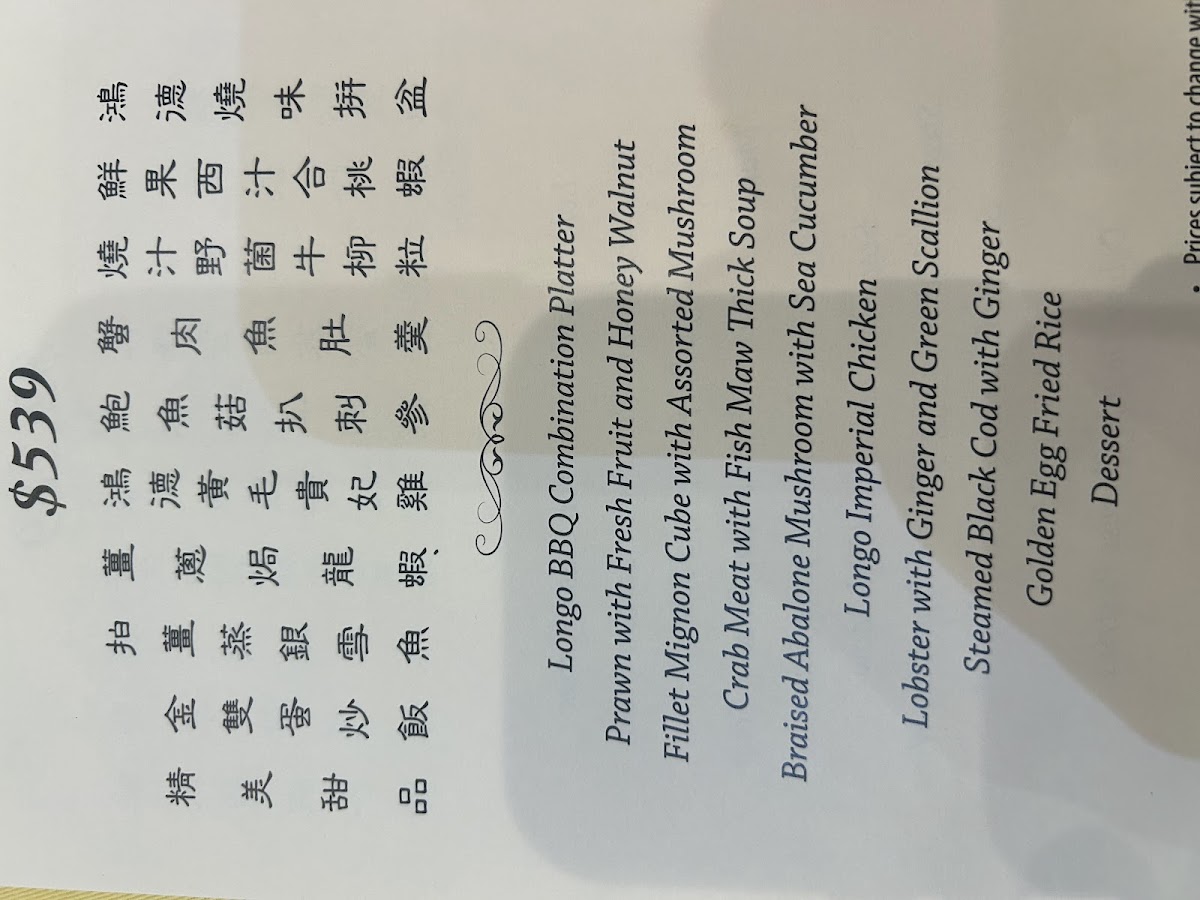 $539
鴻德燒味拼盆
鮮果西汁合桃蝦
燒汁野菌牛柳粒
蟹肉魚肚羹
鮑魚菇扒刺參
鴻德黃毛貴妃雞
薑蔥焗龍蝦、
拍薑蒸銀雪魚
金雙蛋炒飯
精美甜品
Longo BBQ Combination Platter
Prawn with Fresh Fruit and Honey Walnut
Fillet Mignon Cube with Assorted Mushroom
Crab Meat with Fish Maw Thick Soup
Braised Abalone Mushroom with Sea Cucumber
Longo Imperial Chicken
Lobster with Ginger and Green Scallion
Steamed Black Cod with Ginger
Golden Egg Fried Rice
Dessert
• Prices subject to change